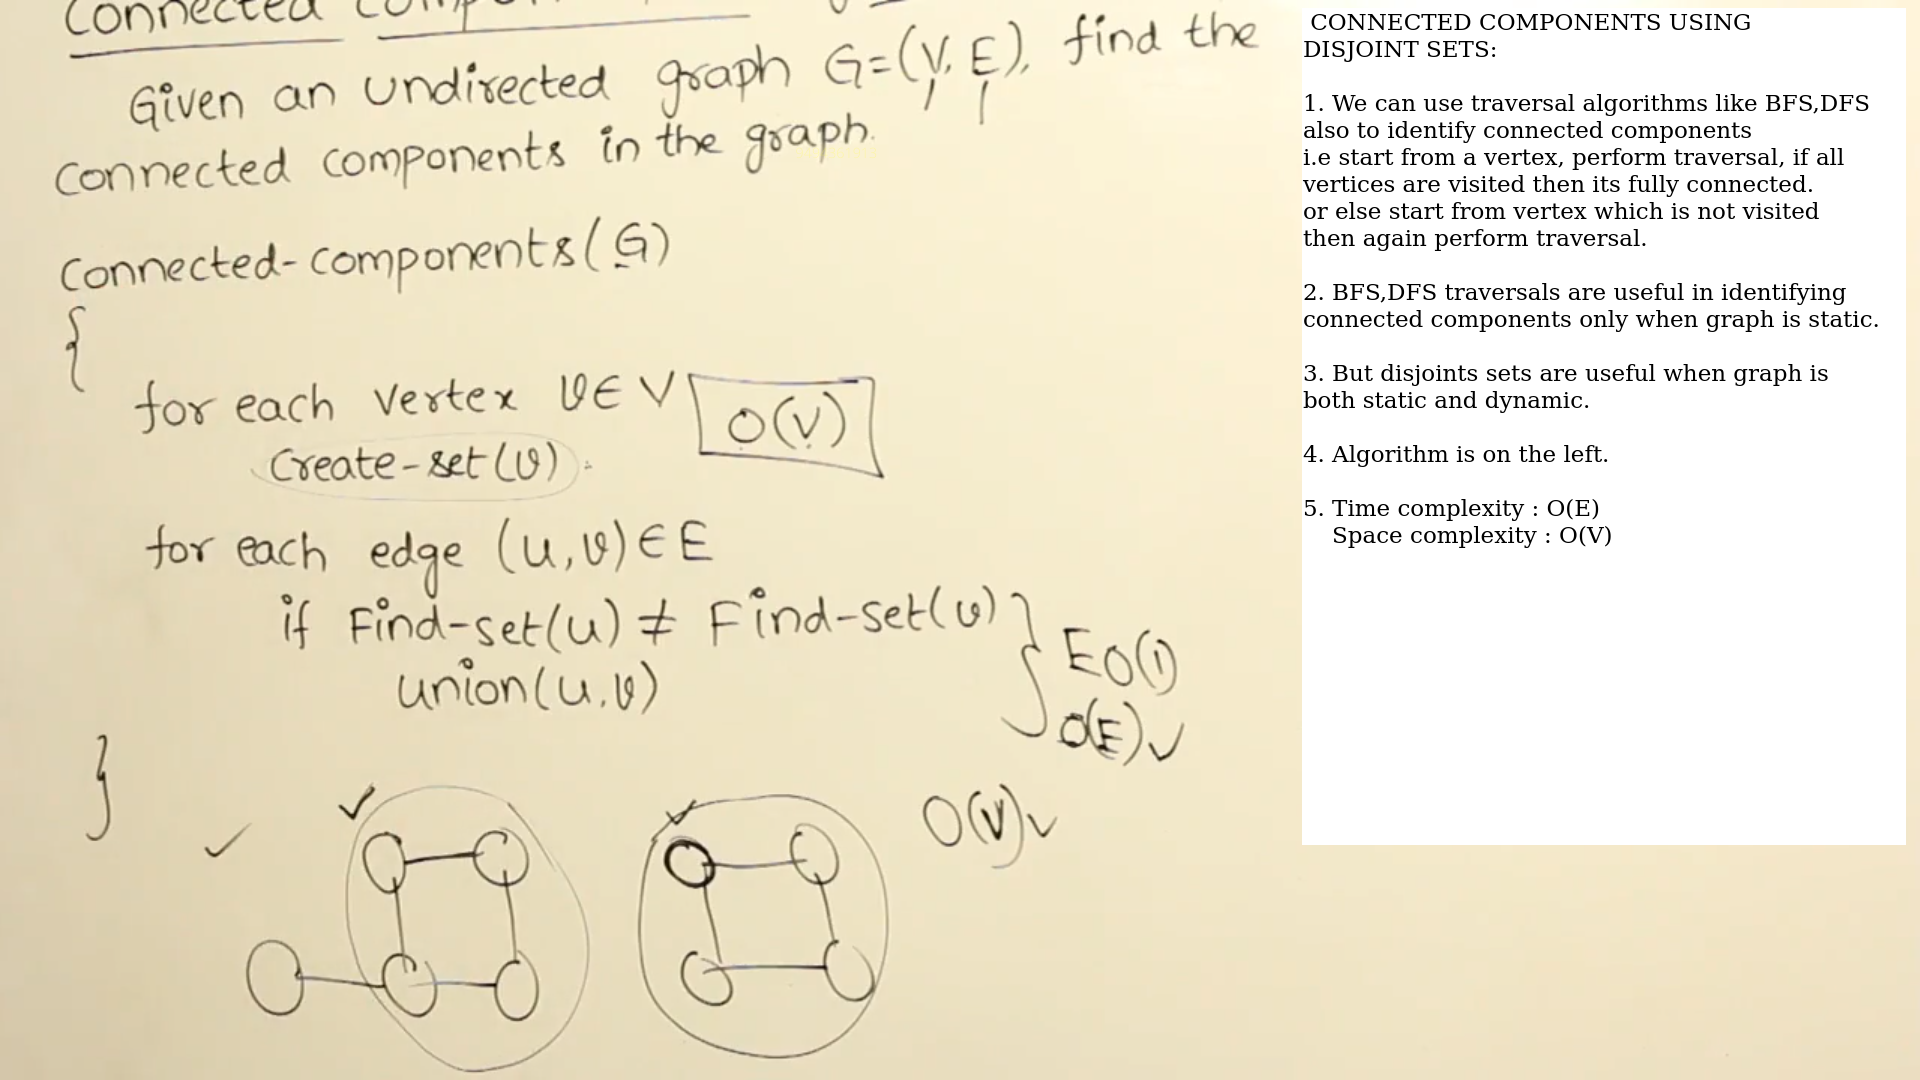 Connected
Given an undirected graph G=(V,E), find the
connected components in the graph.
Connected-components(G)
{
for each vertex v∈V
O(V)
Create-set(v)
for each edge (u,v)∈E
if Find-set(u) ≠ Find-set(v)
union(u,v)
}
EO(1)
O(E)
O(V)
CONNECTED COMPONENTS USING
DISJOINT SETS:
1. We can use traversal algorithms like BFS,DFS
also to identify connected components
i.e start from a vertex, perform traversal, if all
vertices are visited then its fully connected.
or else start from vertex which is not visited
then again perform traversal.
2. BFS,DFS traversals are useful in identifying
connected components only when graph is static.
3. But disjoints sets are useful when graph is
both static and dynamic.
4. Algorithm is on the left.
5. Time complexity : O(E)
Space complexity : O(V)